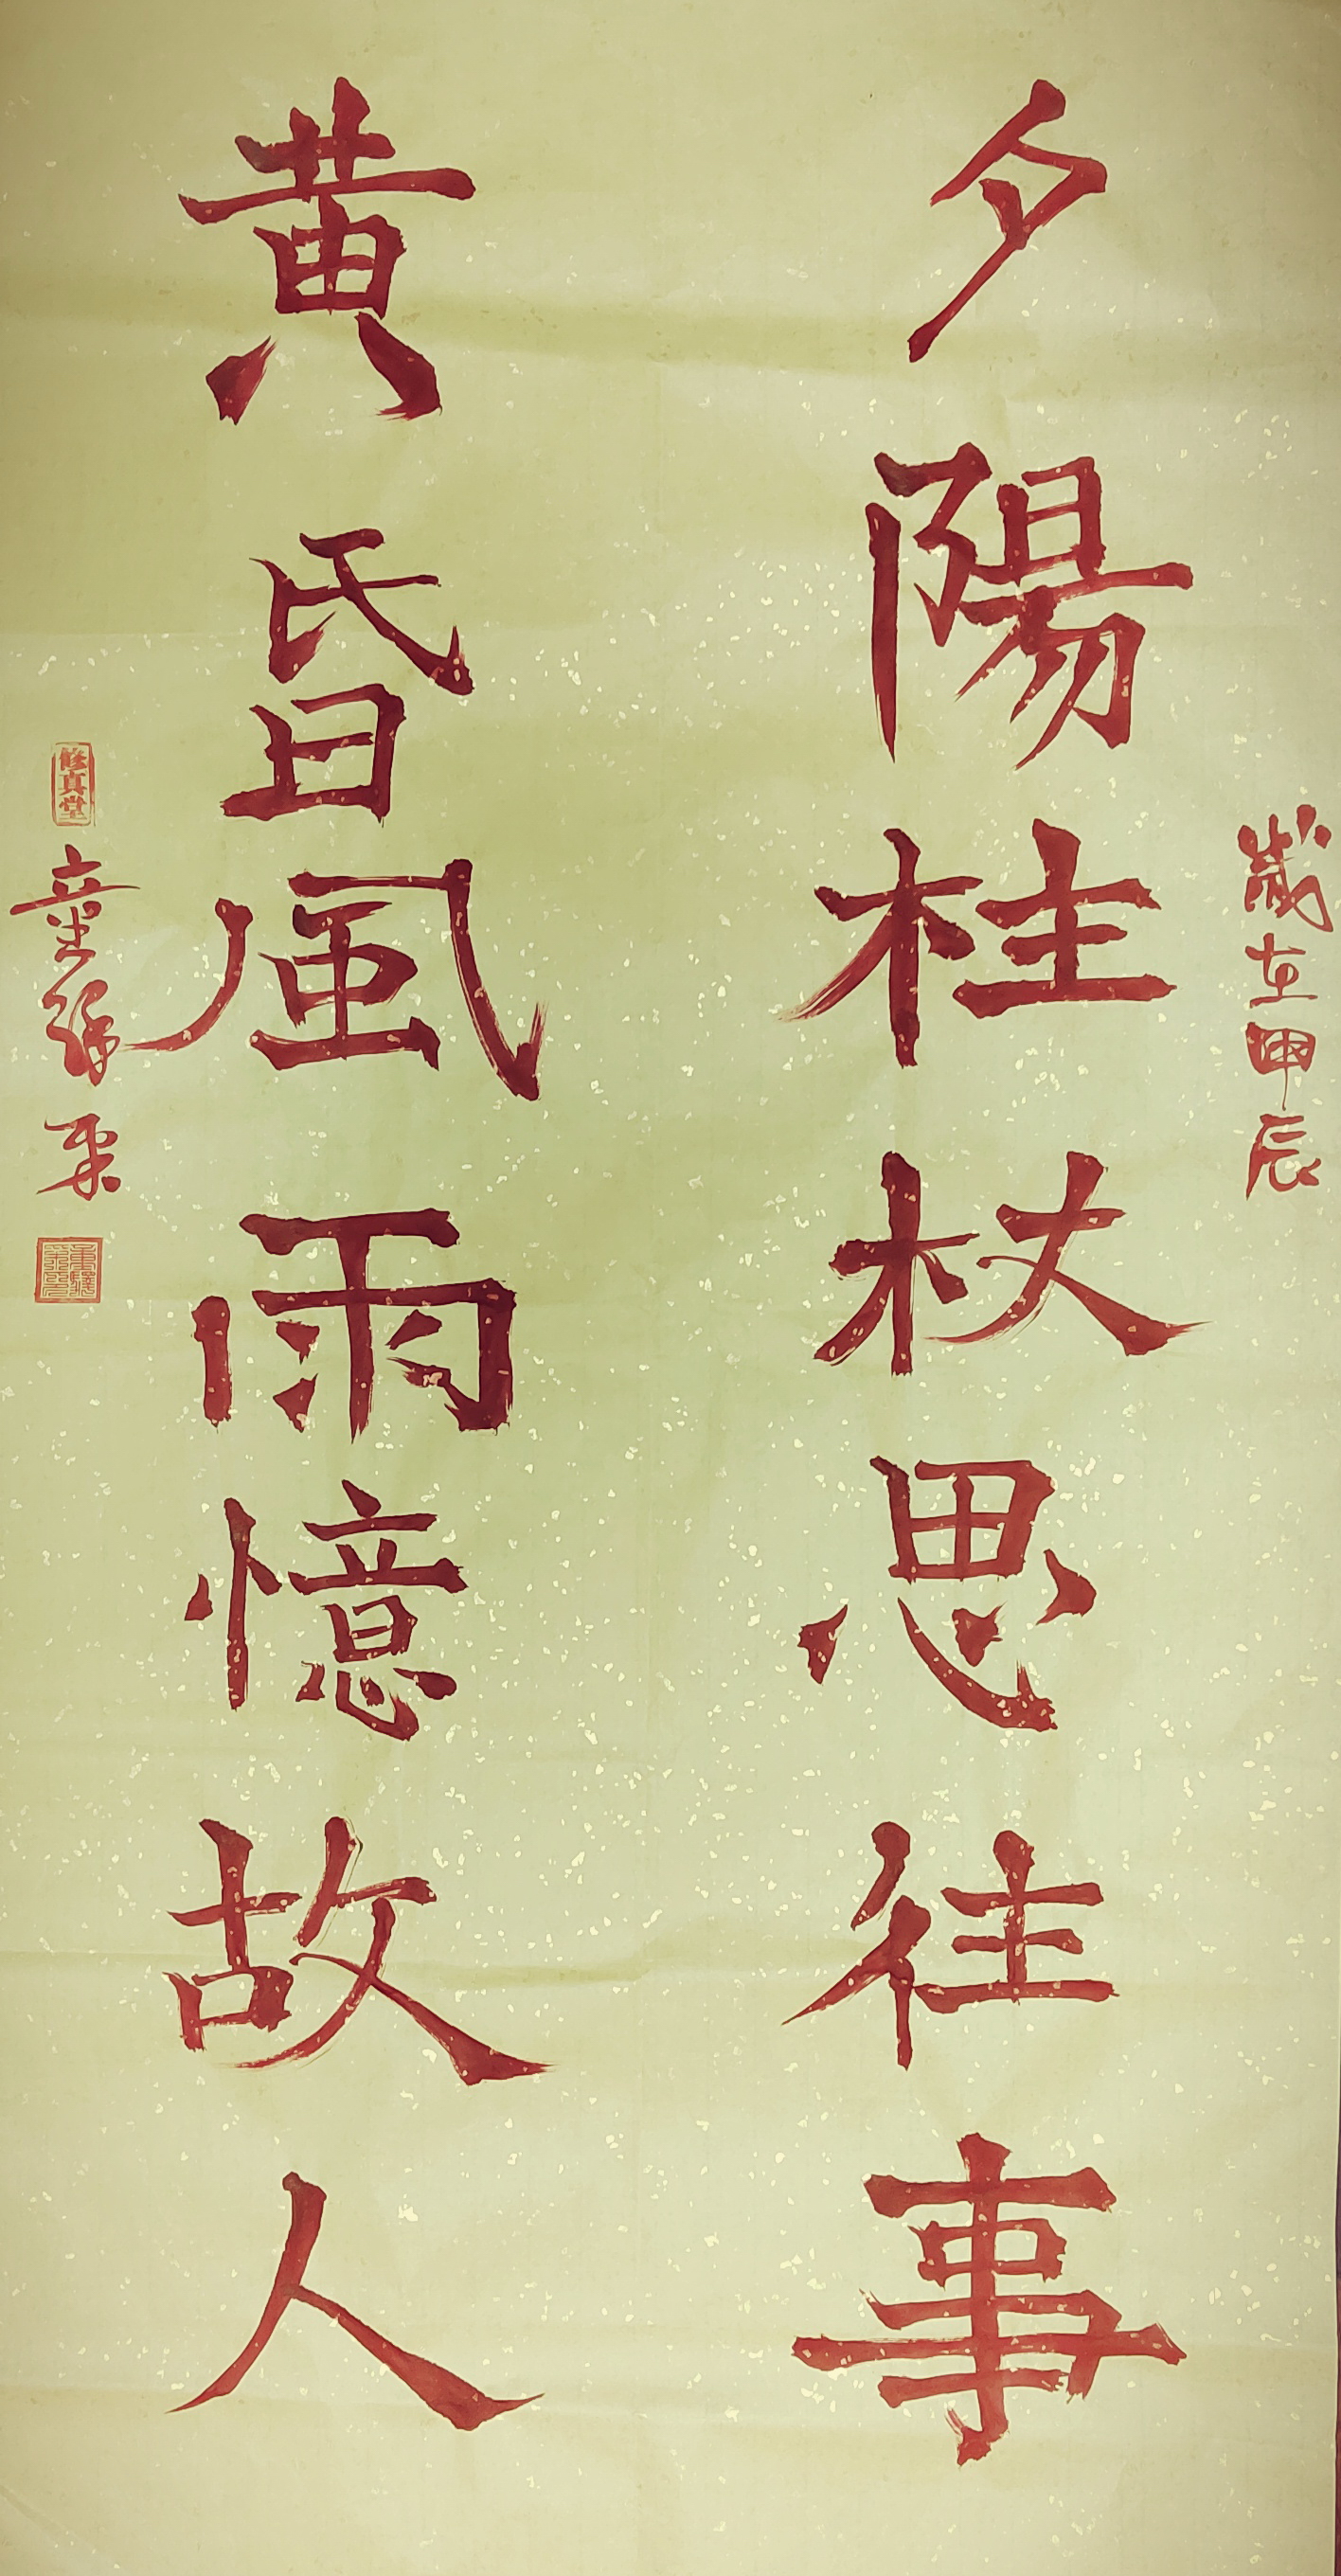 歲在甲辰
夕陽柱杖思往事
黄昏風雨憶故人
修真堂